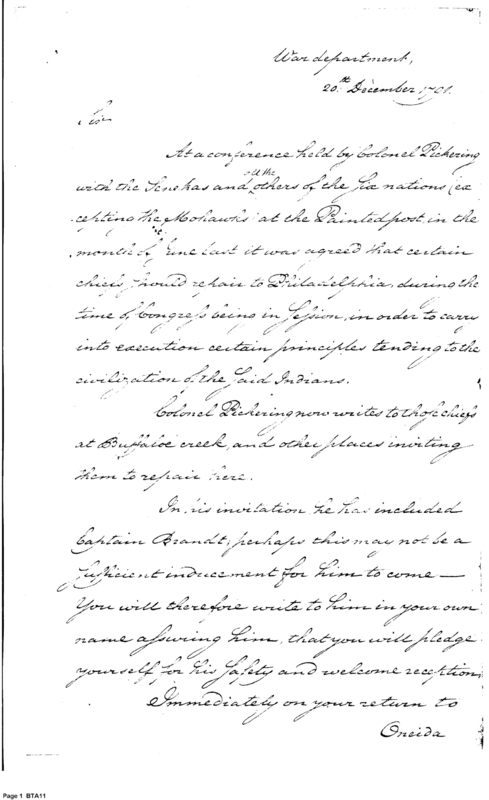 War department,
20th December 1791.
Sir
At a conference held by Colonel Pickering
with the Senekas and all the others of the Six nations (ex
cepting the Mohawks) at the Painted post, in the
month of June last it was agreed that certain
chiefs should repair to Philadelphia, during the
time of Congress being in Session, in order to carry
into execution certain principles tending to the
civilization of the said Indians.
Colonel Pickering now writes to those chiefs
at Buffaloe creek, and other places inviting
them to repair here.
In his invitation he has included
Captain Brandt, perhaps this may not be a
sufficient inducement for him to come—
You will therefore write to him in your own
name assuring him, that you will pledge
yourself for his safety and welcome reception.
Immediately on your return to
Oneida
Page 1 BTA11